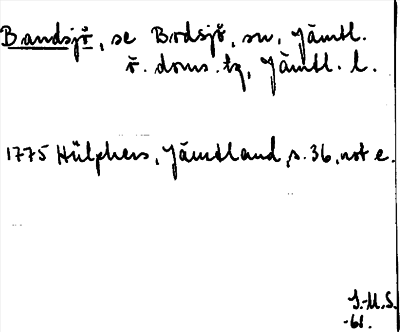 Bandsjö, se Bodsjö, sn, Jämtl.
ö. doms. tg, Jämtl. l.
1775 Hülphers, Jämtland, s. 36, not e.
J.-M.S.
-61.